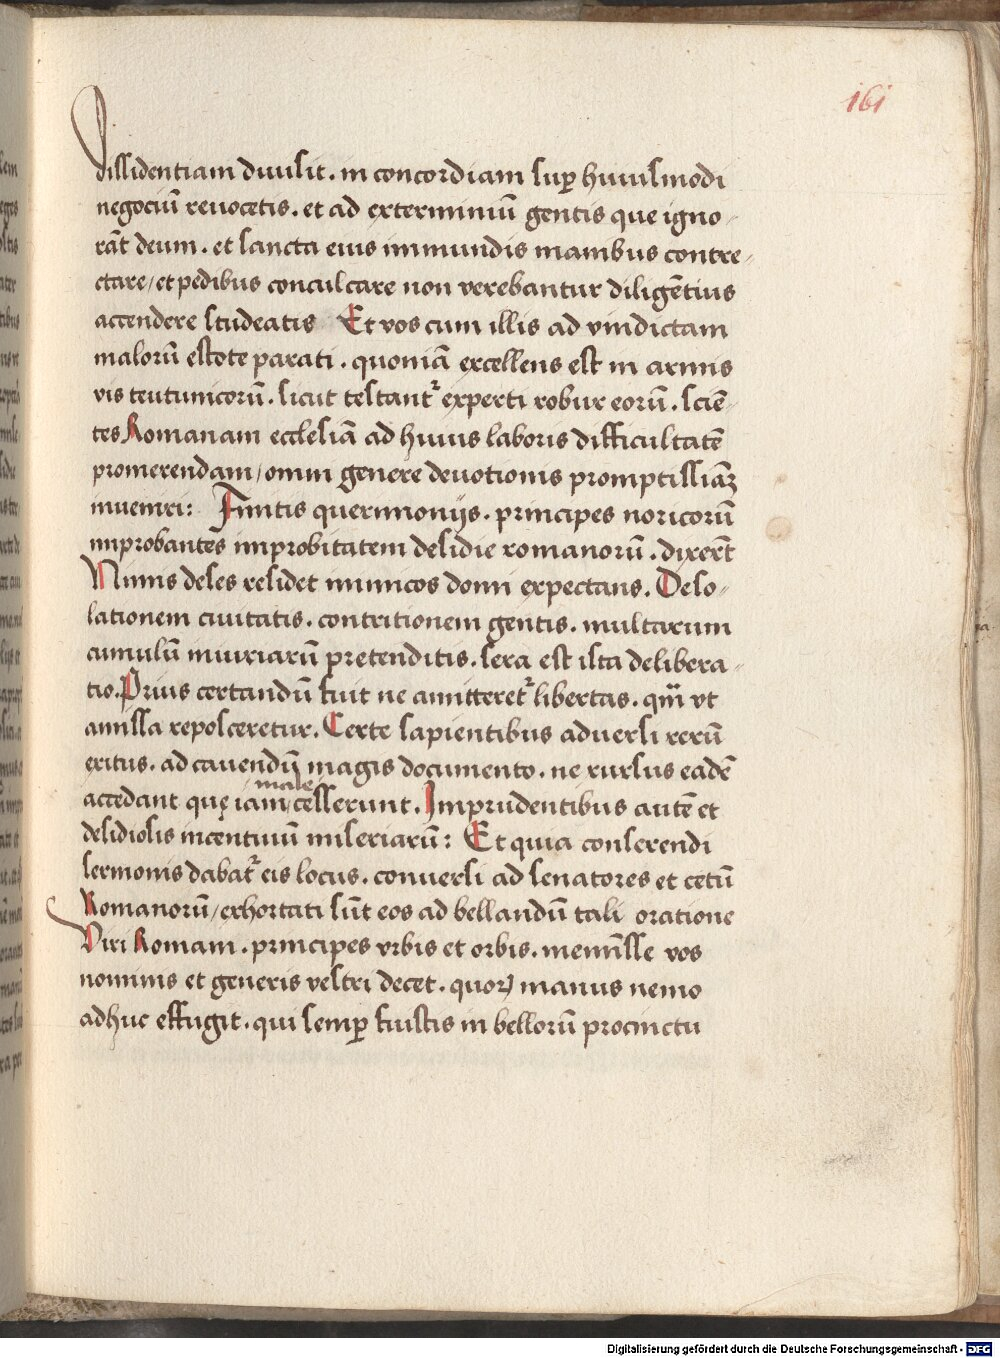 161
dissidentiam diuisit. in concordiam sup̱ huiusmodi
negociū reuocetis. et ad exterminiū gentis que igno-
rāt deum. et sancta eius immundis manibus contre-
ctare/ et pedibus conculcare non verebantur diligētius
accendere studeatis Et vos cum illis ad vindictam
malorū estote parati. quoniā excellens est in armis
vis teutunicorū. sicut testantᷣ experti robur eorū. sciē-
tes Romanam ecclesiā ad huius laboris difficultatē
promerendam/ omni genere deuotionis promptissiāꝫ
inueniri: Finitis querimonijs. principes noricorū
improbantes improbitatem desidie romanorū. dixerūt
Nimis deses residet inimicos domi expectans. Deso-
lationem ciuitatis. contritionem gentis. multarum
cumulū iniuriarū pretenditis. sera est ista delibera-
tio. Prius certandū fuit ne amitteretᷣ libertas. qm̄ vt
amissa reposceretur. Certe sapientibus aduersi rerū
exitus. ad cauendū magis documento. ne rursus eadē
accedant quę iam male cesserunt. Imprudentibus autē et
desidiosis incentiuū miseriarū: Et quia conserendi
sermonis dabatᷣ eis locus. conuersi ad senatores et cetū
Romanorū/ exhortati sūt eos ad bellandū tali oratione
Viri Romani. principes vrbis et orbis. meminisse vos
nominis et generis vestri decet. quoꝝ manus nemo
adhuc effugit. qui semp̱ fuistis in bellorū procinctu
Digitalisierung gefördert durch die Deutsche Forschungsgemeinschaft - DFG